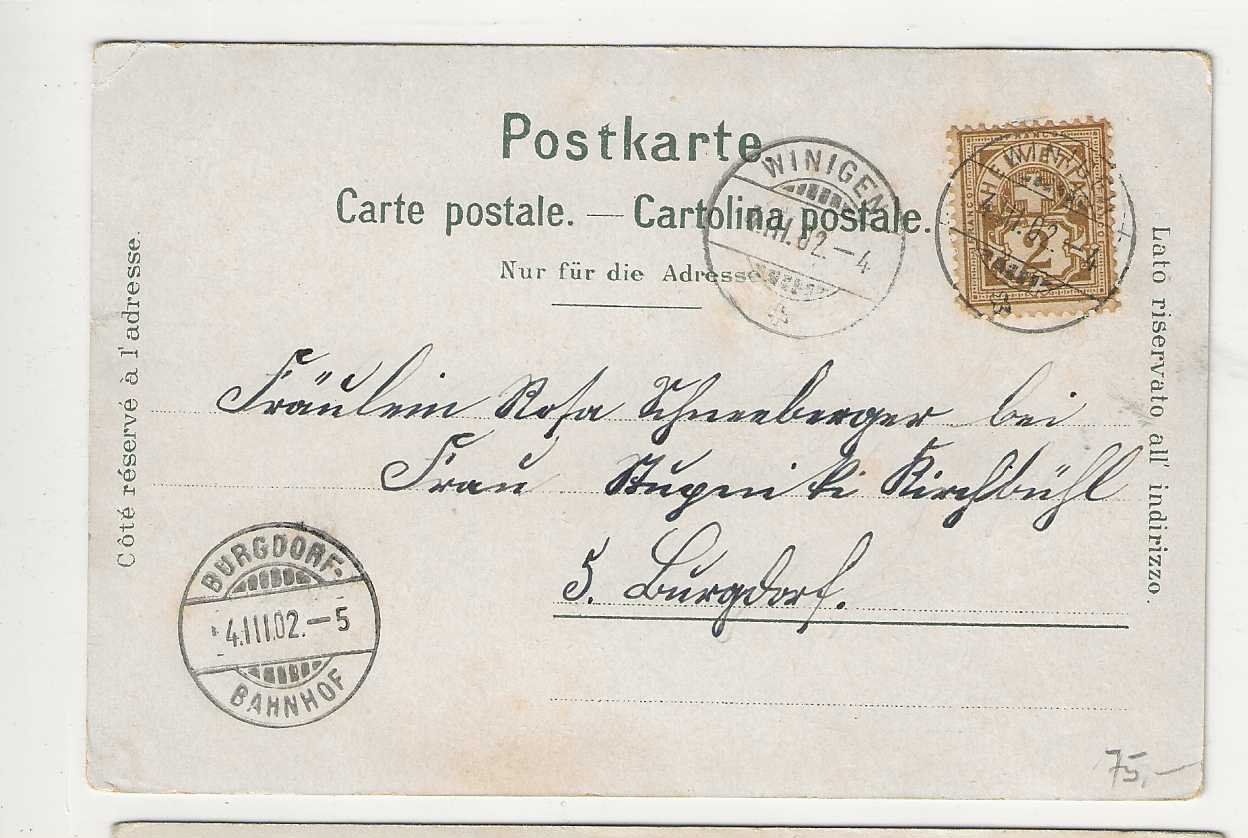 Postkarte
Carte postale. — Cartolina postale.
Nur für die Adresse
Côté réservé à l'adresse.
Lato riservato all' indirizzo.
WINIGEN
III.02.—4
FRANCO
2
Fräulein Rosa Schneeberger bei
Frau Kirchbühl
5. Burgdorf.
BURGDORF-
4.III.02.—5
BAHNHOF
75,-